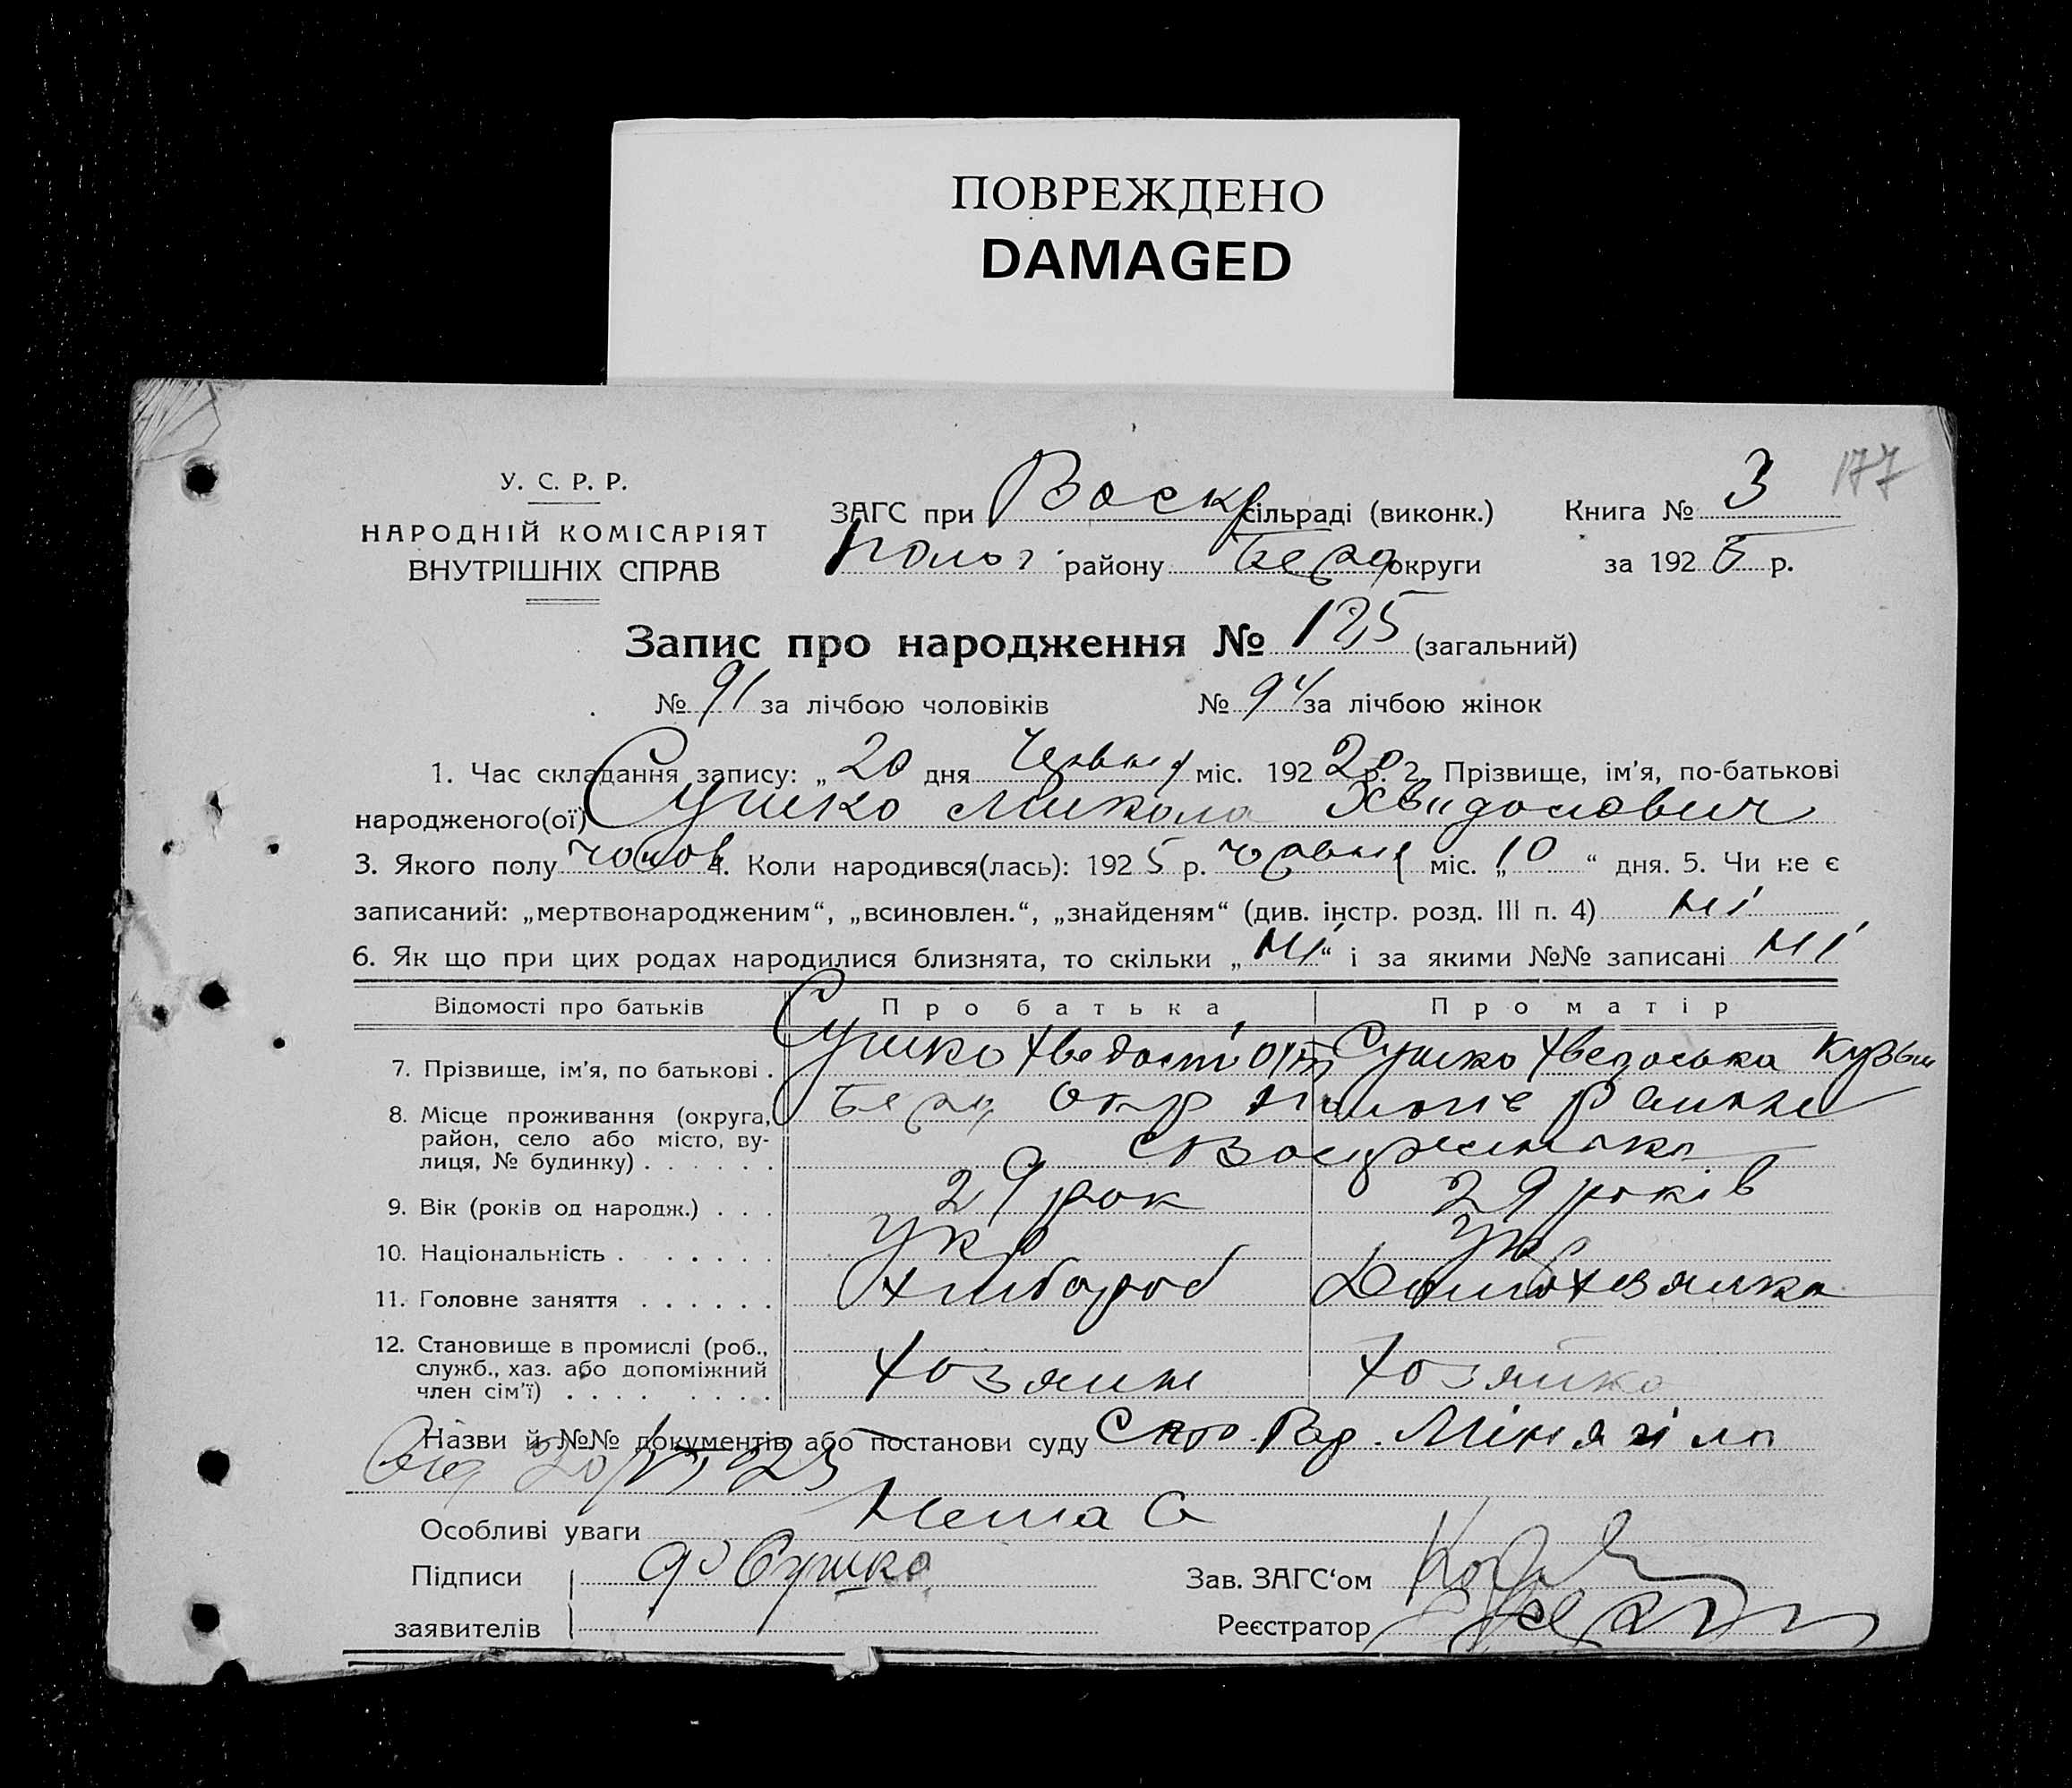 ПОВРЕЖДЕНО
DAMAGED
177
У. С. Р. Р.
НАРОДНІЙ КОМІСАРІЯТ
ВНУТРІШНІХ СПРАВ
ЗАГС при Воскр сільраді (виконк.)
Полог району Берд округи
Книга № 3
за 192 5 р.
Запис про народження № 125 (загальний)
№ 91 за лічбою чоловіків № 94 за лічбою жінок
1. Час складання запису: „ 20 дня Червня міс. 192 р. 2. Прізвище, ім’я, по-батькові
народженого(ої) Сушко Микола
3. Якого полу чолов 4. Коли народився(лась): 192 5 р. червня міс. „ 10 “ дня. 5. Чи не є
записаний: „мертвонародженим“, „всиновлен.“, „знайденям“ (див. інстр. розд. III п. 4) ні
6. Як що при цих родах народилися близнята, то скільки „ ні “ і за якими №№ записані ні
Відомості про батьків Про батька Про матір
7. Прізвище, ім’я, по батькові . Сушко Сушко Хведоська Кузьм
8. Місце проживання (округа, Берд Окр
район, село або місто, ву-
лиця, № будинку) . . . . . .
9. Вік (років од народж.) . . . 29 рок 29 років
10. Національність . . . . . . . Укр Укр
11. Головне заняття . . . . . . Хлібороб Домохозяйка
12. Становище в промислі (роб.,
служб., хаз. або допоміжний
член сім’ї) . . . . . . . . Хозяин Хозяйка
Назви й №№ документів або постанови суду
Особливі уваги Нема
Підписи Сушко
заявителів
Зав. ЗАГС‘ом
Реєстратор